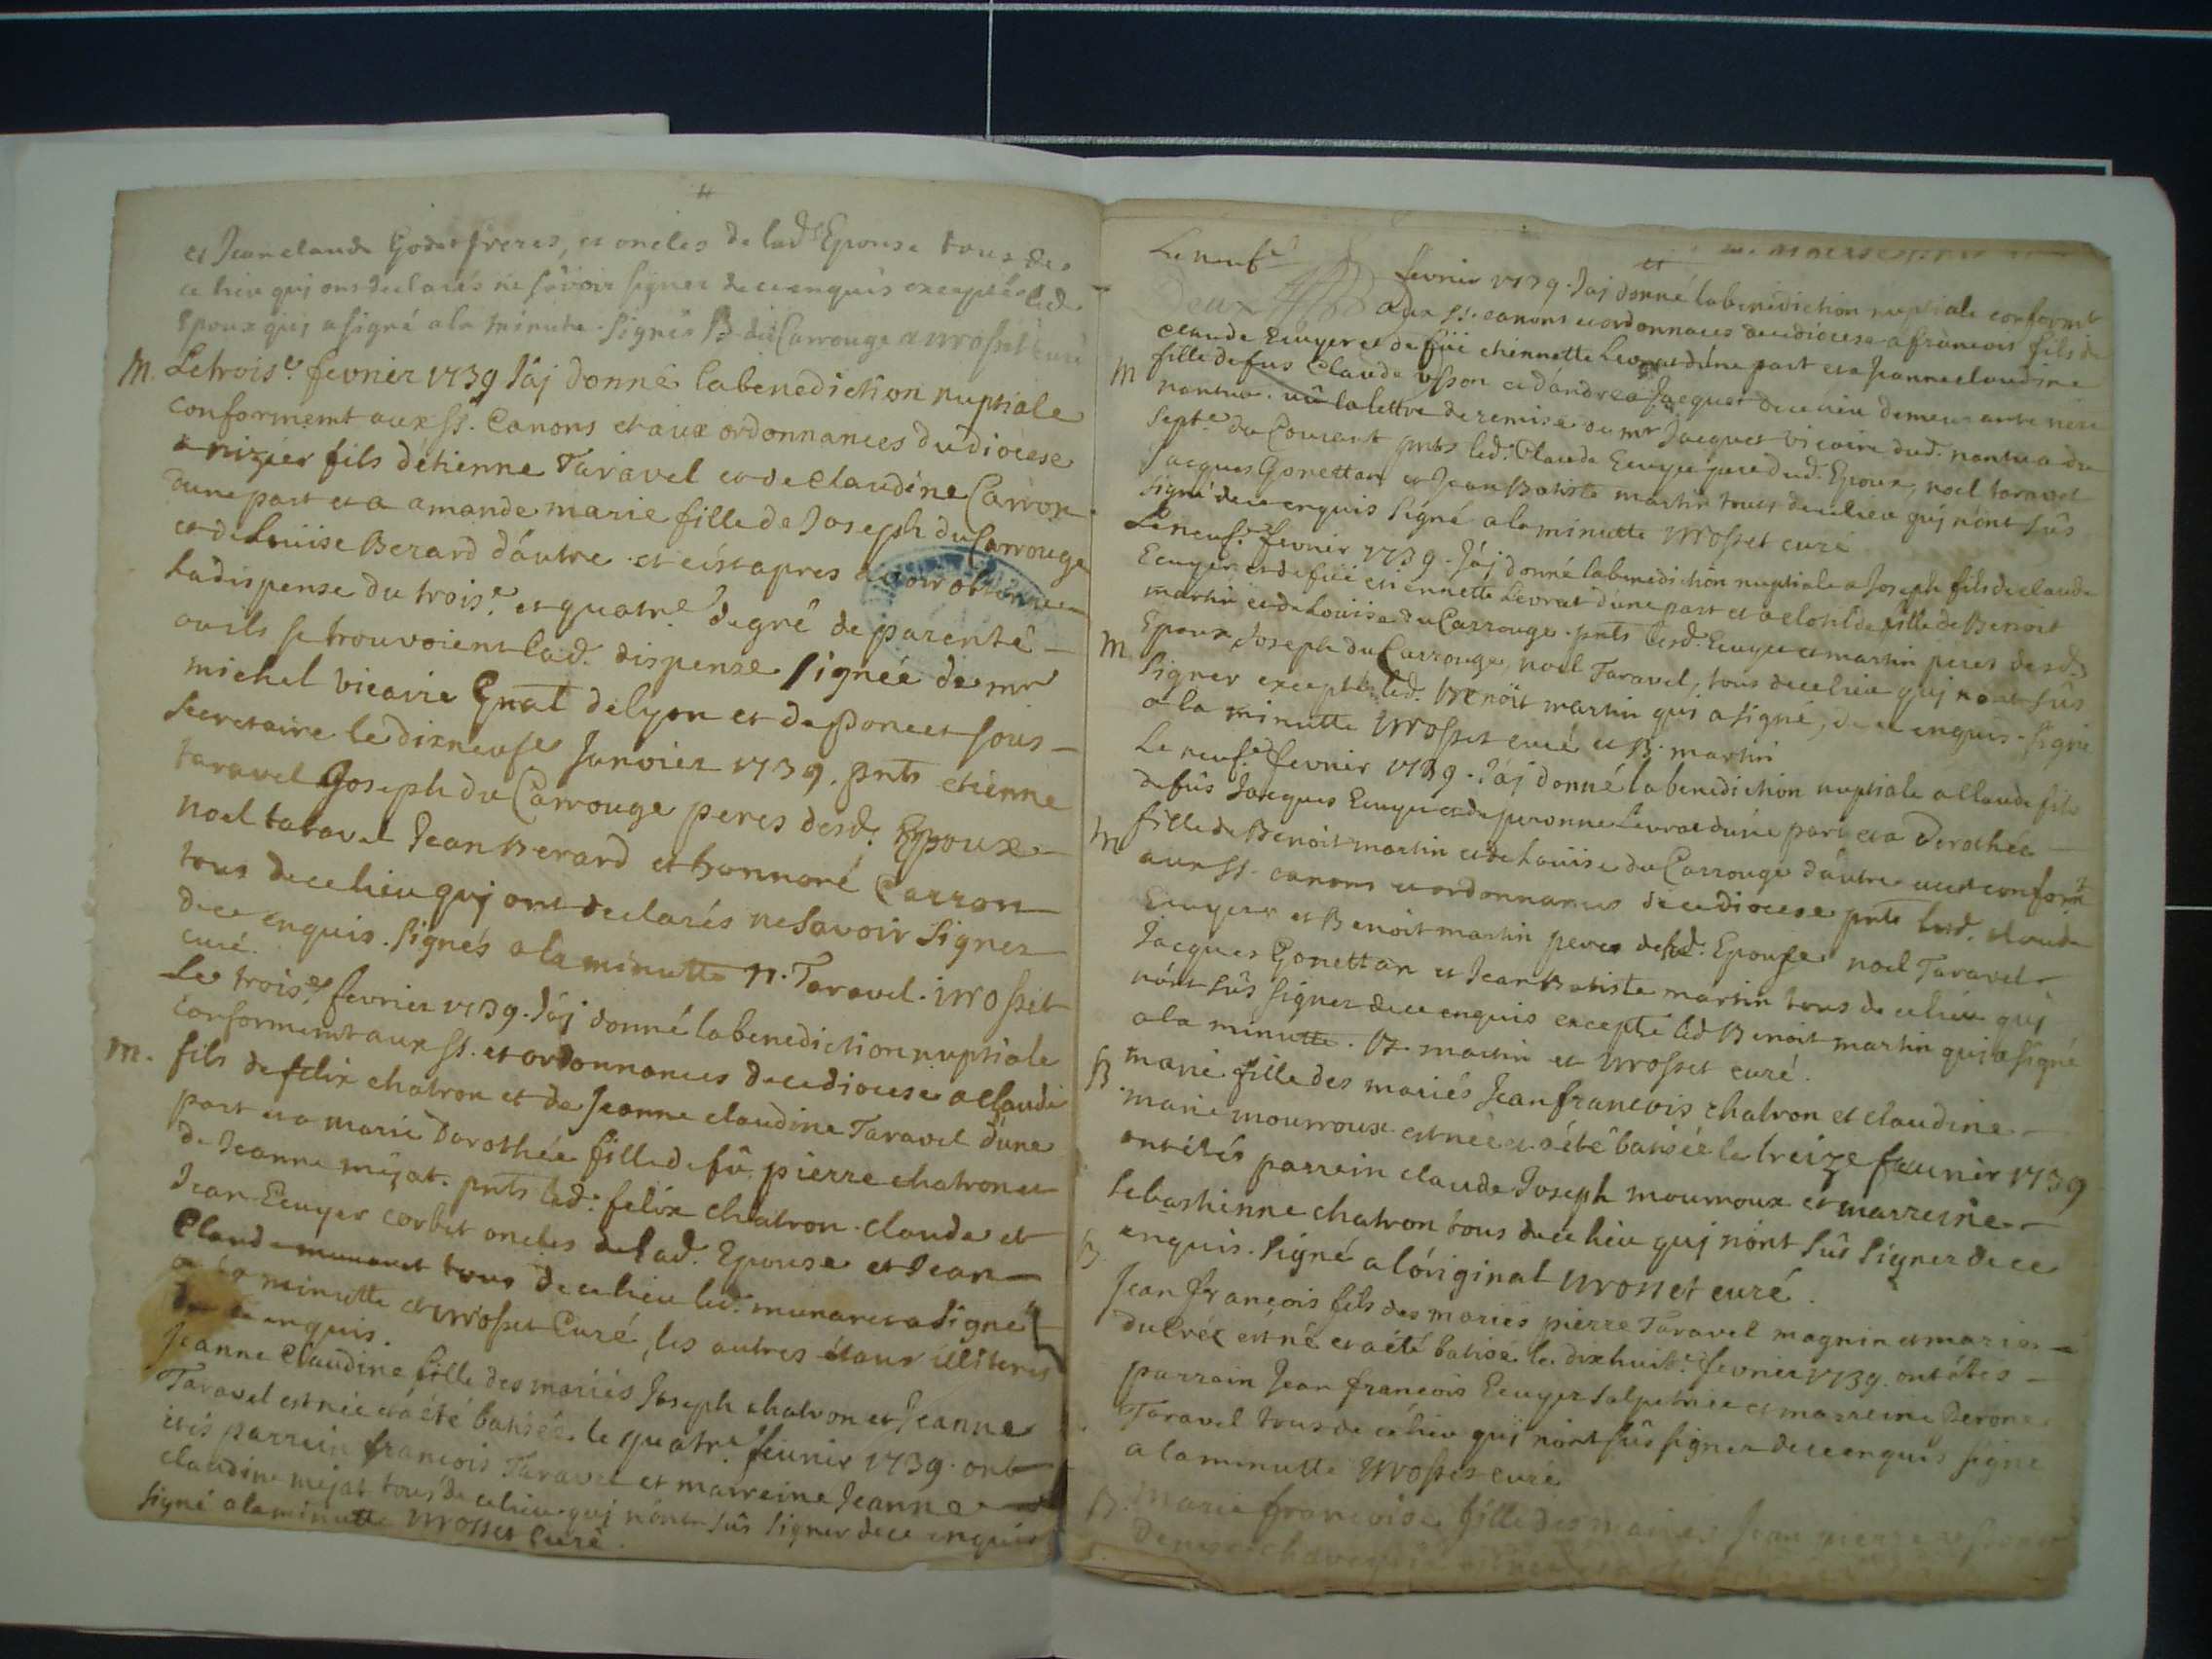 et Jean claude Godet freres, et oncles de lad.e Epouse tous de
ce lieu quj ons declarés ne sçavoir signer de ce enquis exceptés led.
Epoux quj a signé a la minute. Signés B. du Carrouge et Mrosset curé
M. Le trois.e fevrier 1739 J'aj donné la benediction nuptiale
conformemt aux SS. Canons et aux ordonnances du diocese
a nizier fils d'étienne Taravel et de Claudine Carron
d'une part et a amande marie fille de Joseph du Carrouge
et de Louise Berard d'autre. et c'est apres avoir obtenu
la dispense du trois.e et quatr.e degré de parenté
ou ils se trouvoient lad. dispense signée de mr
michel vicaire Gnal de lyon et de Poncet sous
secretaire le dixneufe Janvier 1739. pnts etienne
taravel Joseph du Carrouge peres desd. Epoux
noel taravel Jean Berard et honnoré Carron
tous de ce lieu quj ont declarés ne savoir signer
de ce enquis. signés a la minutte N. Taravel. Mrosset
curé.
Le trois.e fevrier 1739. J'aj donné la benediction nuptiale
conformemt aux SS. et ordonnances de ce diocese a Claude
M. fils de felix chatron et de Jeanne claudine Taravel d'une
part et a marie Dorothée fille de fû pierre chatron et
de Jeanne mejat. pnts led. felix chatron. claude et
Jean Ecuyer corbet oncles de lad. Epouse et Jean
Claude munaret tous de ce lieu led. munaret a signé
a la minutte et Mrosset Curé, les autres étans illiterés
de ce enquis.
Jeanne Claudine fille des mariés Joseph chatron et Jeanne
Taravel est née et a été batisée le quatr.e fevrier 1739. ont
étés parrein francois Taravel et marreine Jeanne
claudine mejat tous de ce lieu quj n'ont sûs signer de ce enquis
signé a la minutte Mrosset Curé.
Le neuf.e fevrier 1739. J'aj donné la benediction nuptiale conformt
aux SS. canons et ordonnances de ce diocese a francois fils de
claude Ecuyer et de füe etiennette Levrat d'une part et a Jeanne claudine
M fille de fus Claude usson et d'andrea Jacquet de ce lieu demeurante
nantua. vû la lettre de remise de mr Jacquet vicaire dud. nantua du
sept.e du Courant pnts led. Claude Ecuyer pere dud. Epoux, noel taravel
Jacques Gonettan et Jean Batiste martin tous de ce lieu quj n'ont sûs
signé de ce enquis signé a la minutte Mrosset curé
Le neuf.e fevrier 1739. J'aj donné la benediction nuptiale a Joseph fils de claude
Ecuyer et de füe etiennette Levrat d'une part et a clotilde fille de Benoit
martin et de Louise du Carrouge. pnts lesd. Ecuyer et martin peres desd.
M Epoux Joseph du Carrouge, noel Taravel, tous de ce lieu quj n'ont sûs
signer excepté led. Benoit martin qui a signé, de ce enquis. signé
a la minutte Mrosset curé et B. martin
Le neuf.e fevrier 1739. J'aj donné la benediction nuptiale a Claude fils
de fûs Jacques Ecuyer et de peronne Levrat d'une part et a Dorothée
M fille de Benoit martin et de Louise du Carrouge d'autre conformt
aux SS. canons et ordonnances de ce diocese pnts led. claude
Ecuyer et Benoit martin peres de lad. Epouse noel Taravel
Jacques Gonettan et Jean Batiste martin tous de ce lieu quj
n'ont sûs signer de ce enquis excepté led Benoit martin qui a signé
a la minutte. B. martin et Mrosset curé.
B. marie fille des mariés Jean francois chatron et claudine
marie mourroux est née et a été batisée le treize fevrier 1739
ont étés parrein claude Joseph mourroux et marreine
sebastienne chatron tous de ce lieu quj n'ont sûs signer de ce
enquis. signé a l'original Mrosset curé.
B. Jean françois fils des mariés pierre Taravel magnin et marie
ducrêt est né et a été batisé le dixhuit.e fevrier 1739. ont étés
parrain Jean francois Ecuyer salpetrier et marreine Perone
Taravel tous de ce lieu quj n'ont sûs signer de ce enquis signé
a la minutte Mrosset curé
B. Marie francoise fille des mariés Jean pierre